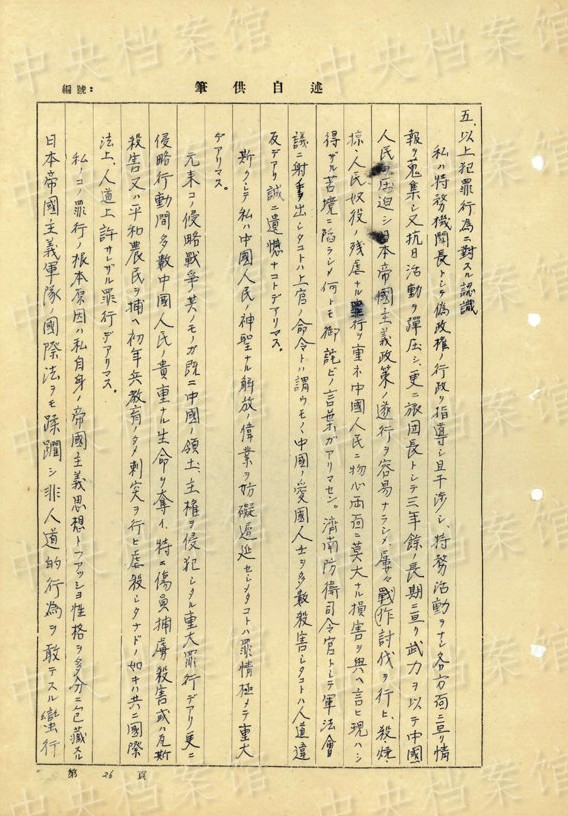 中央档案馆
編號:
筆供自述
五、以上犯罪行為ニ対スル認識
私ハ特務機関長トシテ偽政権ノ行政ヲ指導シ且干渉シ、特務活動ヲナシ各方面ニ亘リ情
報ヲ蒐集シ又抗日活動ヲ弾圧シ更ニ旅団長トシテ三年餘ノ長期ニ亘リ武力ヲ以テ中國
人民ヲ圧迫シ日本帝國主義政策ノ遂行ヲ容易ナラシメ、屢々戰作討伐ヲ行ヒ、殺、燒、
掠、人民奴役ノ残虐ナル罪行ヲ重ネ中國人民ニ物心両面ニ莫大ナル損害ヲ與ヘ言ヒ現ハシ
得ザル苦境ニ陥ラシメ何トモ御詫ビノ言葉ガアリマセン。濟南防衛司令官トシテ軍法會
議ニ出シタコトハ上官ノ命令トハ謂ウモノノ中國ノ愛國人士ヲ多数殺害シタコトハ人道違
反デアリ誠ニ遺憾ナコトデアリマス。
斯クシテ私ハ中國人民ノ神聖ナル解放ノ偉業ヲ妨礙遅延セシメタコトハ罪情極メテ重大
デアリマス。
元来コノ侵略戰爭其ノモノガ既ニ中國ノ領土、主権ヲ侵犯シタル重大罪行デアリ更ニ
侵略行動間多数中國人民ノ貴重ナル生命ヲ奪イ、特ニ傷員捕虜殺害或ハ瓦斯
殺害又ハ平和農民ヲ捕ヘ初年兵教育ノタメ刺突ヲ行ヒ虐殺シタナドノ如キハ共ニ國際
法上、人道上許サレザル罪行デアリマス。
私ノコノ罪行ノ根本原因ハ私自身ノ帝國主義思想トファッショ性格ヲ多分ニ包藏スル
日本帝國主義軍隊ノ國際法ヲモ蹂躙シ非人道的行為ヲ敢テスル蠻行
第 26 頁